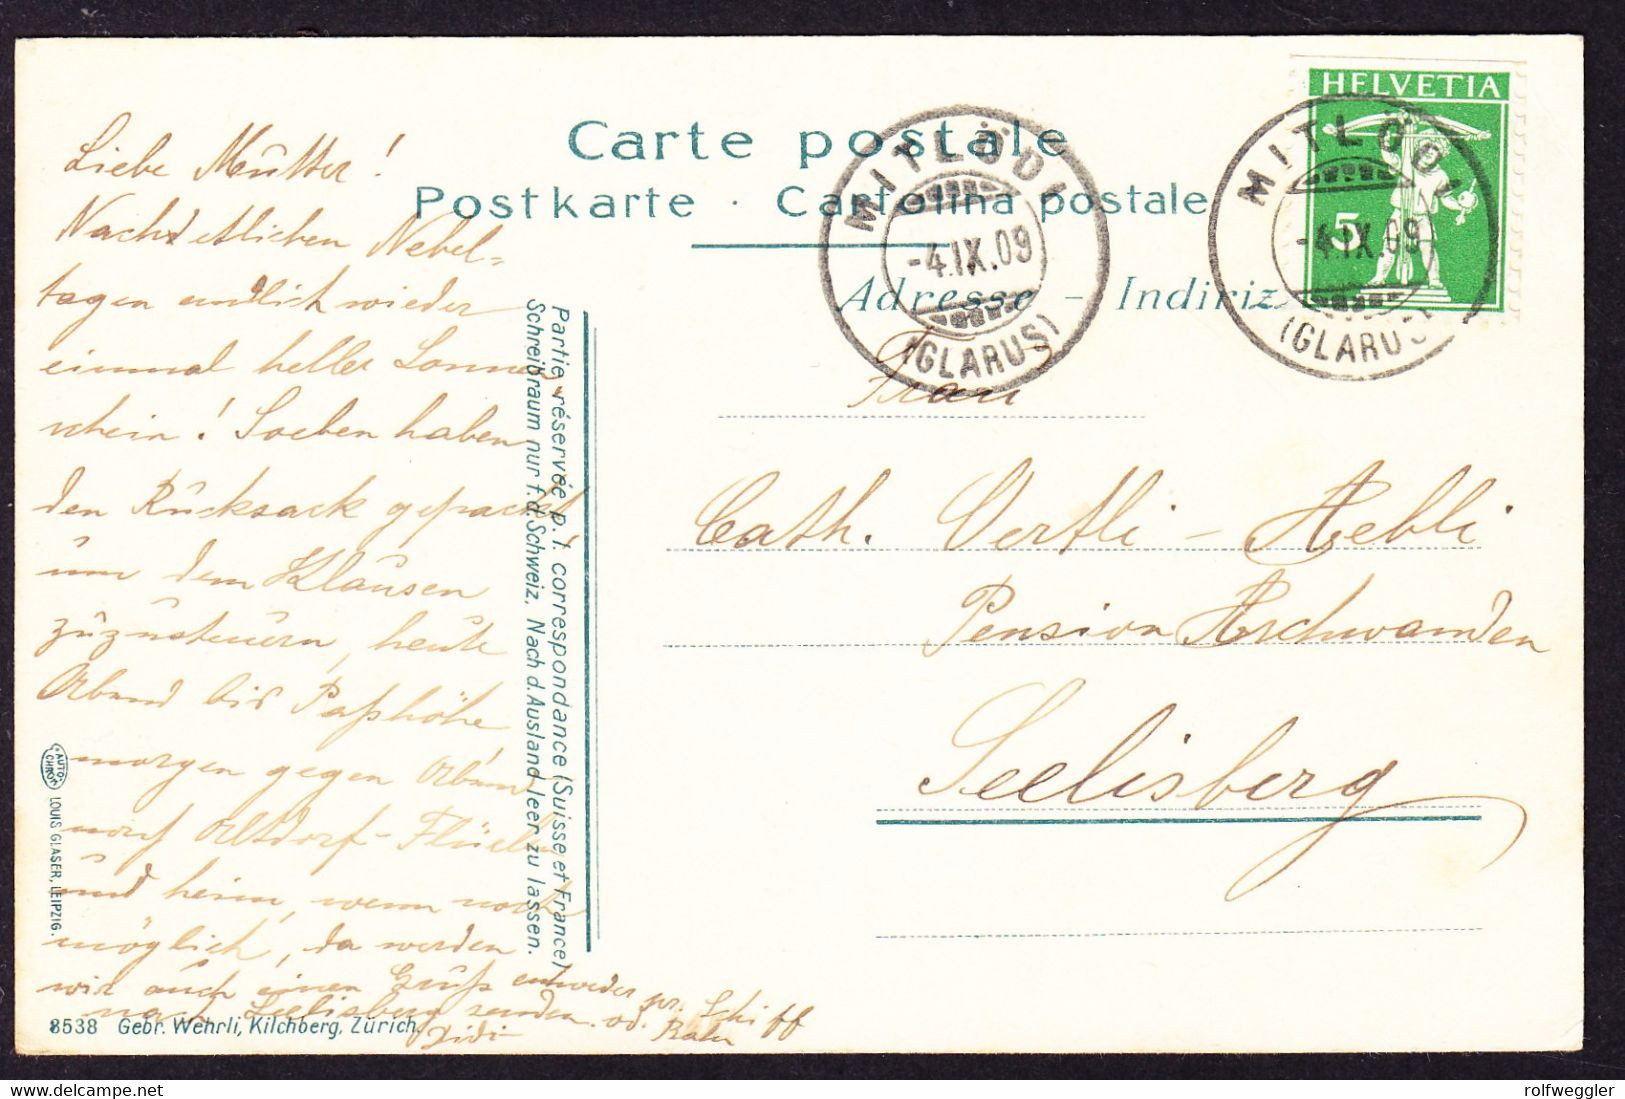 Carte postale
Postkarte · Cartolina postale
Adresse - Indiriz
HELVETIA
5
MITLÖDI
-4.IX.09
(GLARUS)
MITLÖDI
-4.IX.09
(GLARUS)
Liebe Mutter!
Nachdetlichen Nebel-
tagen endlich wieder
einmal heller Sonnen
schein! Soeben haben
den Rucksack gepackt
um dem Klausen
zuzusteuern, heute
Abend bis Paßhöhe
morgen gegen Abend
nach Altdorf-Flüelen
und heim, wenn noch
möglich, da werden
wir auch einen Gruß entweder pr. Schiff
nach Seelisberg senden. od. Bahn
Didi
Partie réservée p. l. correspondance (Suisse et France)
Schreibraum nur f. d. Schweiz. Nach d. Ausland leer zu lassen.
Frau
Cath. Oertli - Aebli
Pension Aschwanden
Seelisberg
AUTO-
CHROM
LOUIS GLASER, LEIPZIG.
8538 Gebr. Wehrli, Kilchberg, Zürich.
www.delcampe.net
rolfweggler